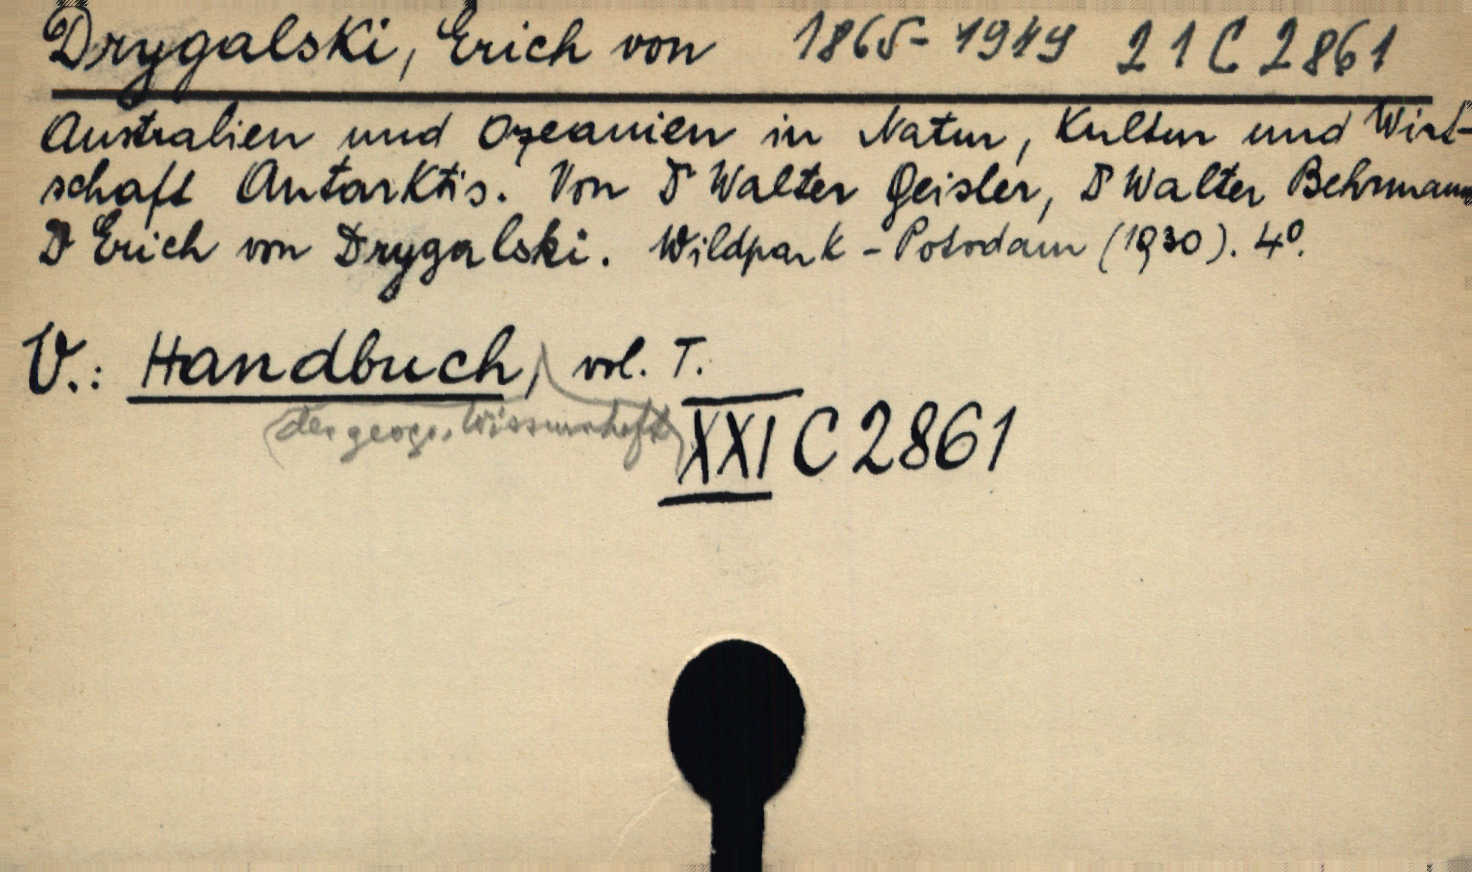 Drygalski, Erich von 1865-1949 21 C 2861
Australien und Ozeanien in Natur, Kultur und Wirt-
schaft Antarktis. Von Dr Walter Geisler, Dr Walter Behrmann
Dr Erich von Drygalski. Wildpark-Potsdam (1930). 4º.
V.: Handbuch, vol. T.
(der geogr. Wissenschaft)
XXI C 2861